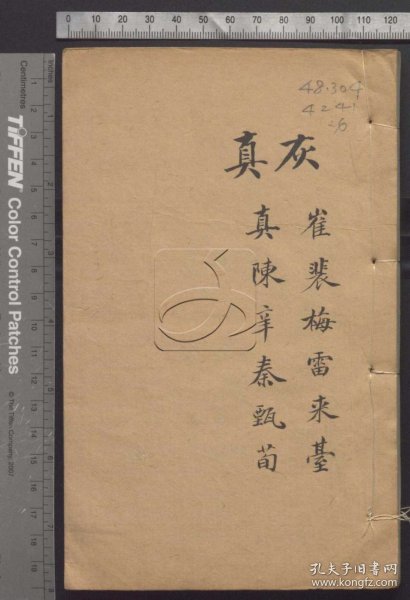 48·304
424'
:6
灰
真
崔裴梅雷来臺
真陳辛秦甄荀
Centimetres
Inches
TIFFEN Color Control Patches
© The Tiffen Company, 2007
mm 0 10 20 30 40 50 60 70 80 90 100 110 120 130 140 150 160 170 180 190 200
孔夫子旧书网
www.kongfz.com